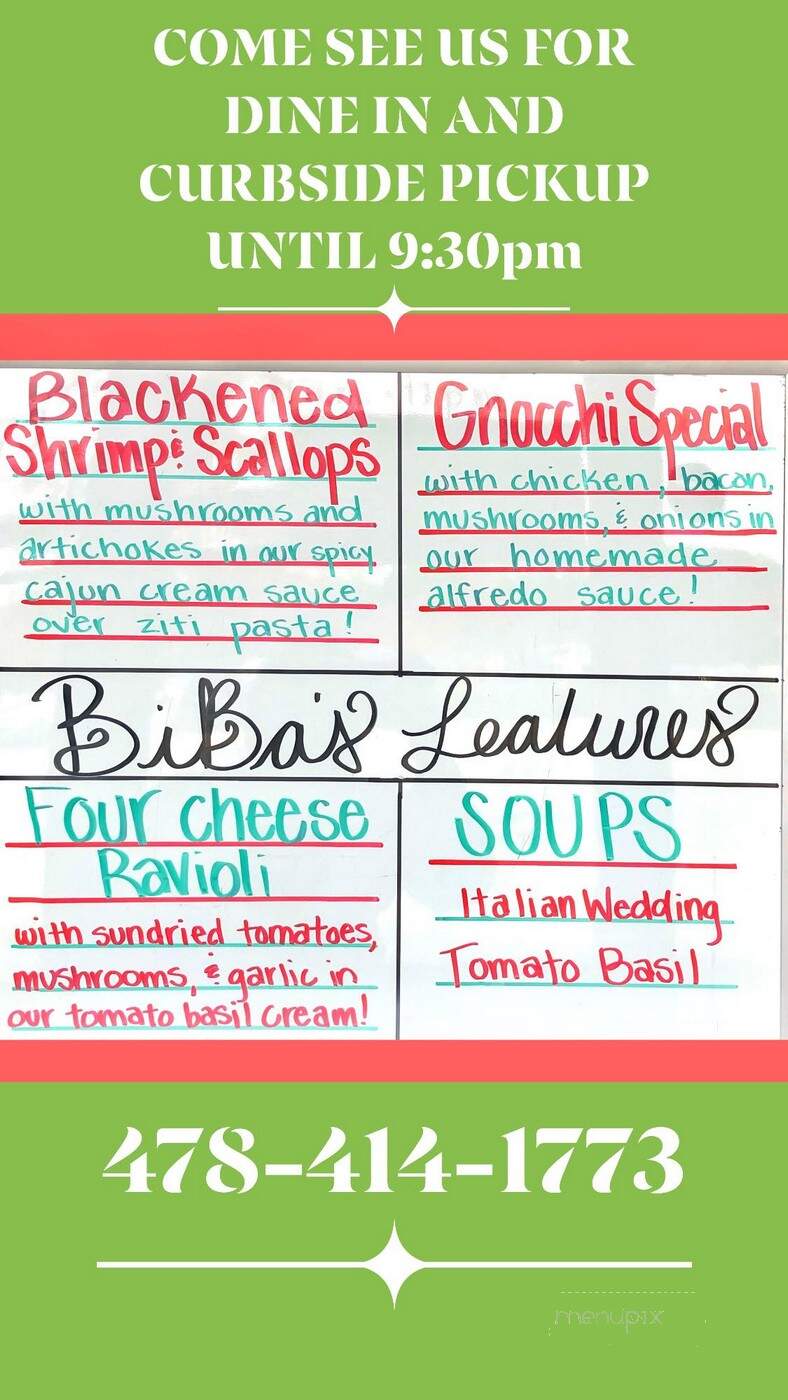 COME SEE US FOR
DINE IN AND
CURBSIDE PICKUP
UNTIL 9:30pm
Blackened
Shrimp & Scallops
with mushrooms and
artichokes in our spicy
cajun cream sauce
over ziti pasta!
Gnocchi Special
with chicken, bacon,
mushrooms, & onions in
our homemade
alfredo sauce!
BiBa's Features
Four cheese
Ravioli
with sundried tomatoes,
mushrooms, & garlic in
our tomato basil cream!
SOUPS
Italian Wedding
Tomato Basil
478-414-1773
menupix